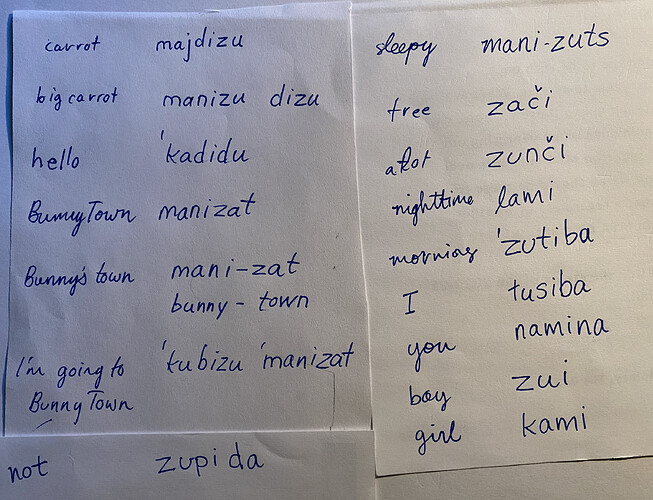 carrot majdizu
big carrot manizu dizu
hello 'kadidu
BunnyTown manizat
Bunny's town mani-zat
bunny - town
I'm going to 'tubizu 'manizat
Bunny Town
not zupida
sleepy mani-zuts
tree zači
a lot zunči
nighttime lami
morning 'zutiba
I tusiba
you namina
boy zui
girl kami